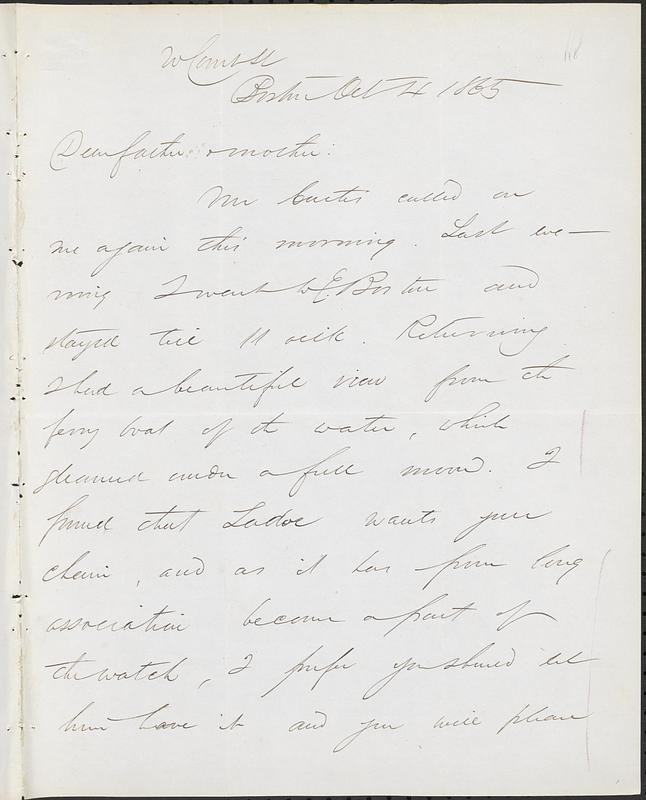 Boston Oct 4 1865
Dear father & mother:
Mr Curtis called on
me again this morning. Last eve-
ning I went to E. Boston and
stayed till 11 oclk. Returning
I had a beautiful view from the
ferry boat of the water, which
gleamed under a full moon. I
found that Ladoc wants your
chain, and as it has from long
association become a part of
the watch, I prefer you should let
him have it and you will please